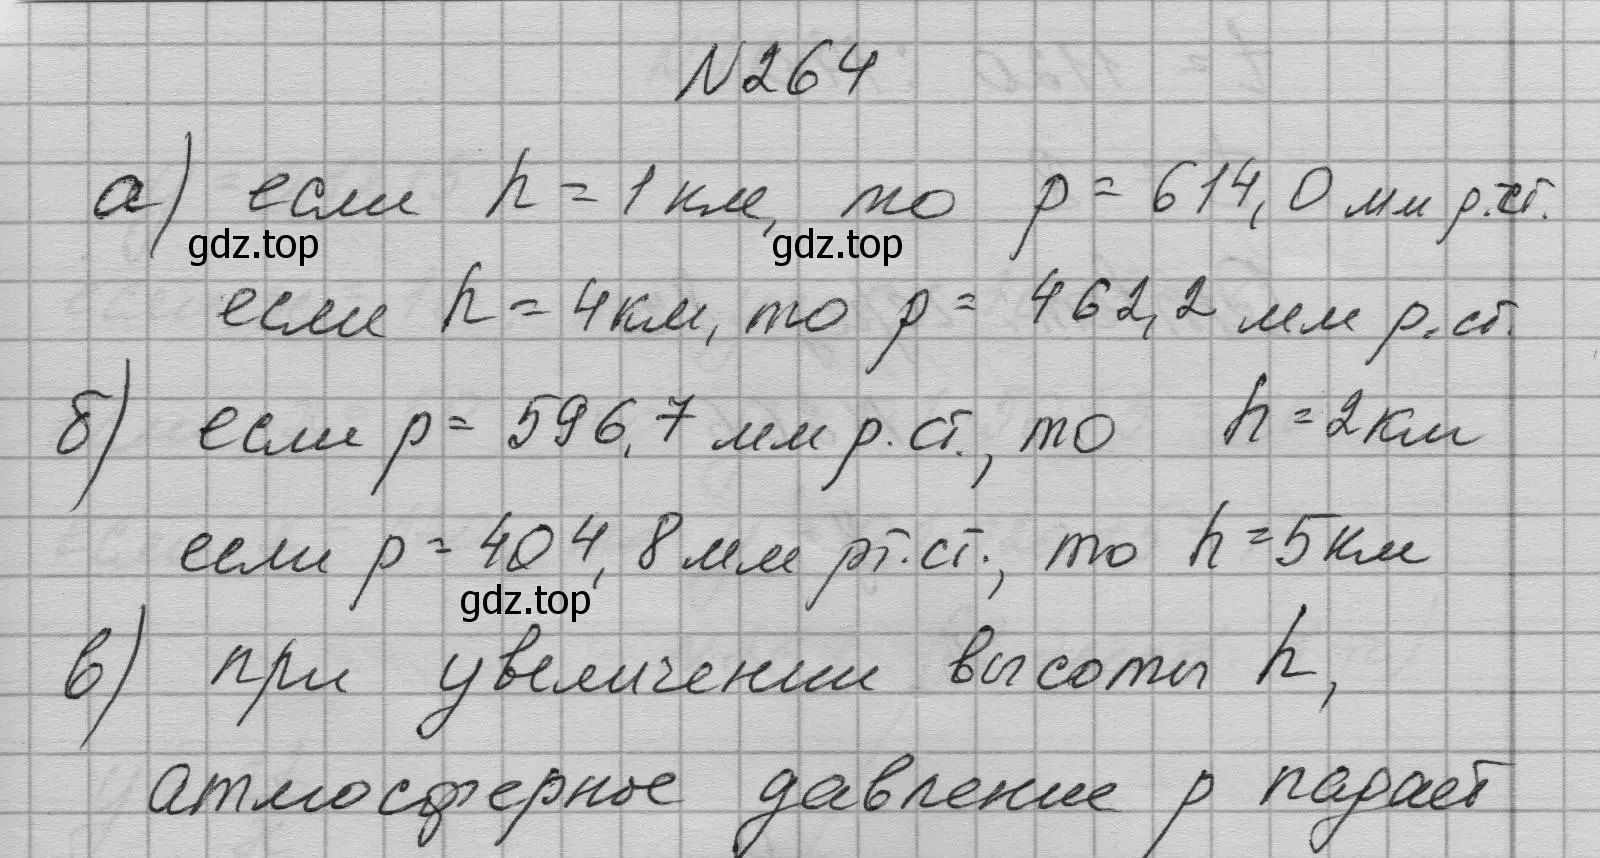 №264
а) если h = 1 км, то p = 614,0 мм р.ст.
gdz.top gdz.top
если h = 4 км, то p = 462,2 мм р.ст.
б) если p = 596,7 мм р.ст., то h = 2 км
если p = 404,8 мм рт.ст., то h = 5 км
gdz.top
в) при увеличении высоты h,
атмосферное давление p падает